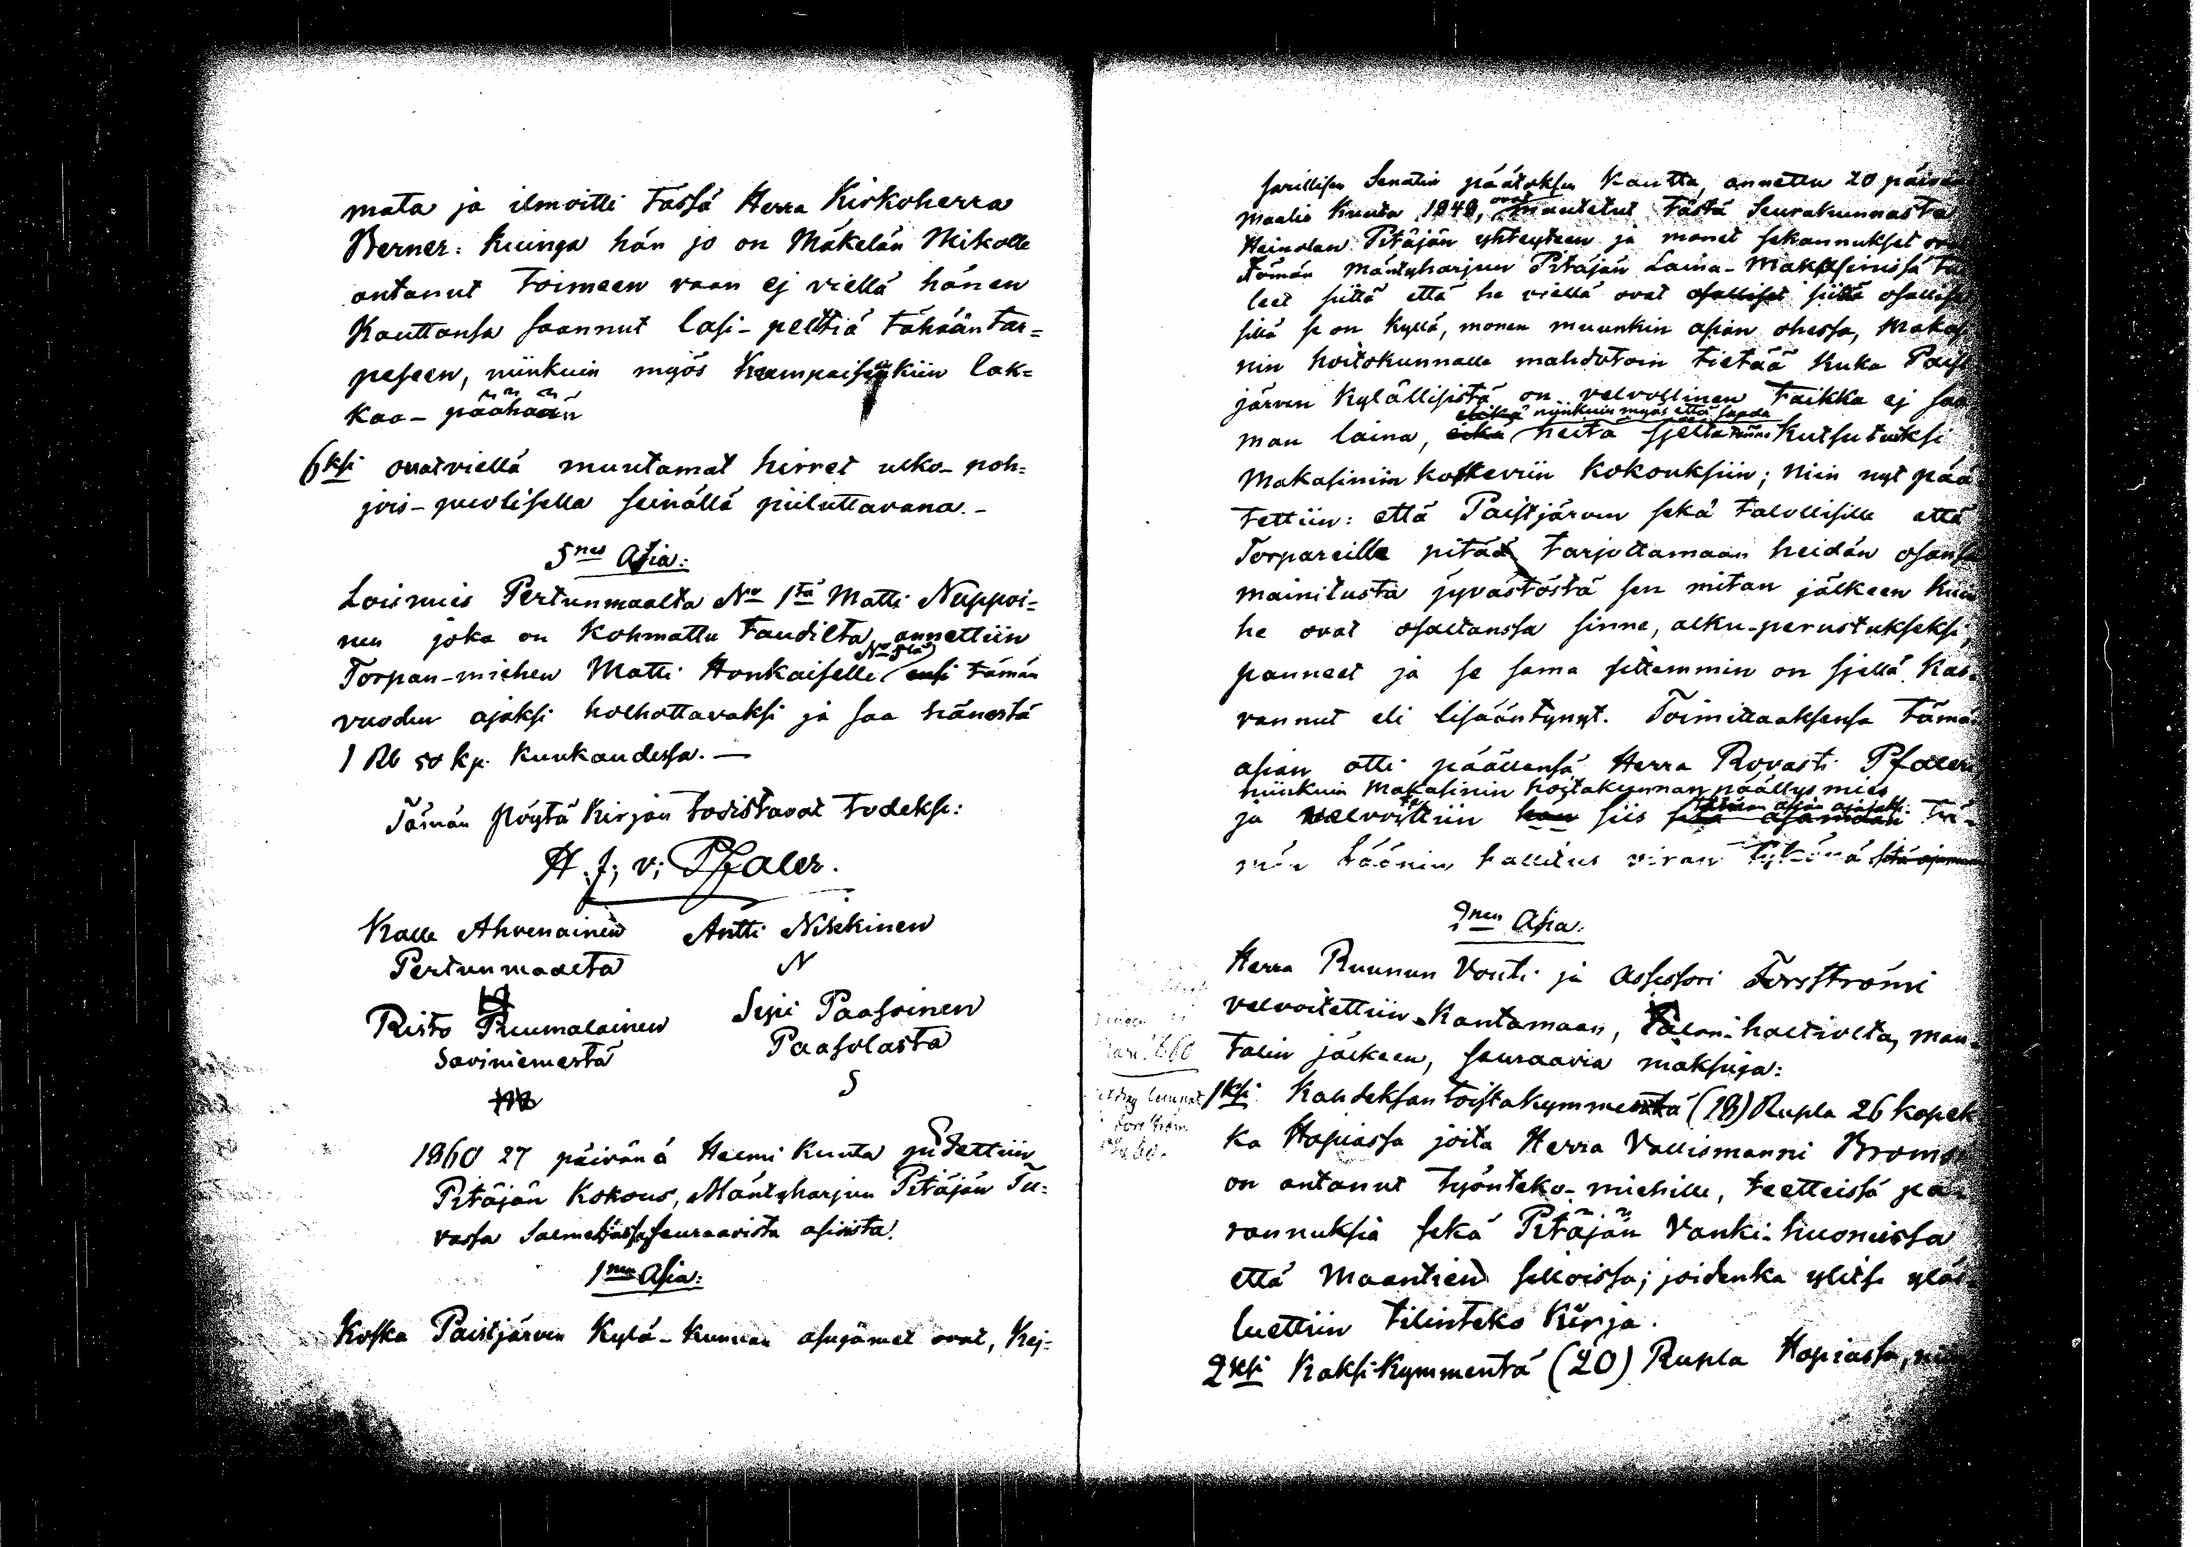 mata ja ilmoitti tässä Herra Kirkoherra
Berner: kuinga hän jo on Mäkelän Mikolle
antanut toimeen vaan ej viellä hänen
Kauttansa saannut lasi-peltiä tähään tar=
peseen, niinkuin myös Kumpaisenkiin lak=
kaa-päähään
6ksi ovat viellä muutamat hirret ulko-poh=
jois-puolisella seinällä piiluttavana.-
5nes Asia:
Loismies Pertunmaalta No 1tä Matti Nuppoi=
nen joka on kohmattu taudilta, annettiin
Torpan-miehen Matti Honkaiselle No 5tä ensi tämän
vuoden ajaksi holhottavaksi ja saa hänestä
1 Rb 50 kp. Kuukaudessa.—
Tämän Pöytä Kirjan todistavat todeksi:
H. J; v; Pfaler.
Kalle Ahvenainen Antti Niskinen
Pertunmaalta N
Risto Ruumalainen Sipi Paasoinen
Saviniemestä Paasolasta
S
1860 27 päivänä Helmi Kuuta pidettiin
Pitäjän Kokous, Mäntyharjun Pitäjän Tu=
vassa Salmelassa, seuraavista asioista:
1nen Asia:
Koska Paistjärven Kylä-Kunnan asujamet ovat, Kej=
sarillisen Senatin päätöksen Kautta, annettu 20 päivänä
Maalis Kuuta 1848, ovat muutetut tästä Seurakunnasta
Heinolan Pitäjän yhteyteen ja monet sekannukset ovat
tämän Mäntyharjun Pitäjän Laina-Makasinissä tul
leet siittä että he viellä ovat osalliset siitä osallise
sillä se on kyllä, monen muunkin asian ohessa, Makasi
nin hoitokunnalle mahdotoin tietää kuka Paist
järven Kylällisistä on velvollinen taikka ej saa
eikä niinkuin myös että saada
man laina, eikä heitä sjeltä Kutsutuksi
Makasiniin koskeviin kokouksiin; Niin nyt pää
tettiin: että Paistjärven sekä talollisille että
Torpareille pitää tarjottamaan heidän osansa
mainitusta jyvästöstä sen mitan jälkeen kuin
he ovat osaltanssa sinne, alku-perustukseksi,
panneet ja se sama sittemmin on sjellä kas=
vannut eli lisääntynyt. Toimittaaksensa tämän
asian otti päällensä Herra Rovasti Pfaler
niinkuin Makasinin hoitakunnan päällysmies
ja velvoitettiin hän siis tämän asian ajajaksi tä=
män läänin hallitus viran tykönä
2nen Asia:
Herra Ruunun Vouti ja Assessori Forsströmi
velvoitettiin Kantamaan, Taloin-haltiolta, man=
talin jälkeen, seuraavia maksuja:
1ksi Kahdeksantoistakymmentä (18) Rupla 26 kopek
ka Hopiassa joita Herra Vallismanni Broms
on antanut työnteko-miehille, teetteissä pa=
rannuksia sekä Pitäjän Vanki-huoneissa
että Maantien silloissa; joidenka ylitse yläs=
luettiin tilinteko Kirja.
2ksi Kaksi-Kymmentä (20) Rupla Hopiassa, niin